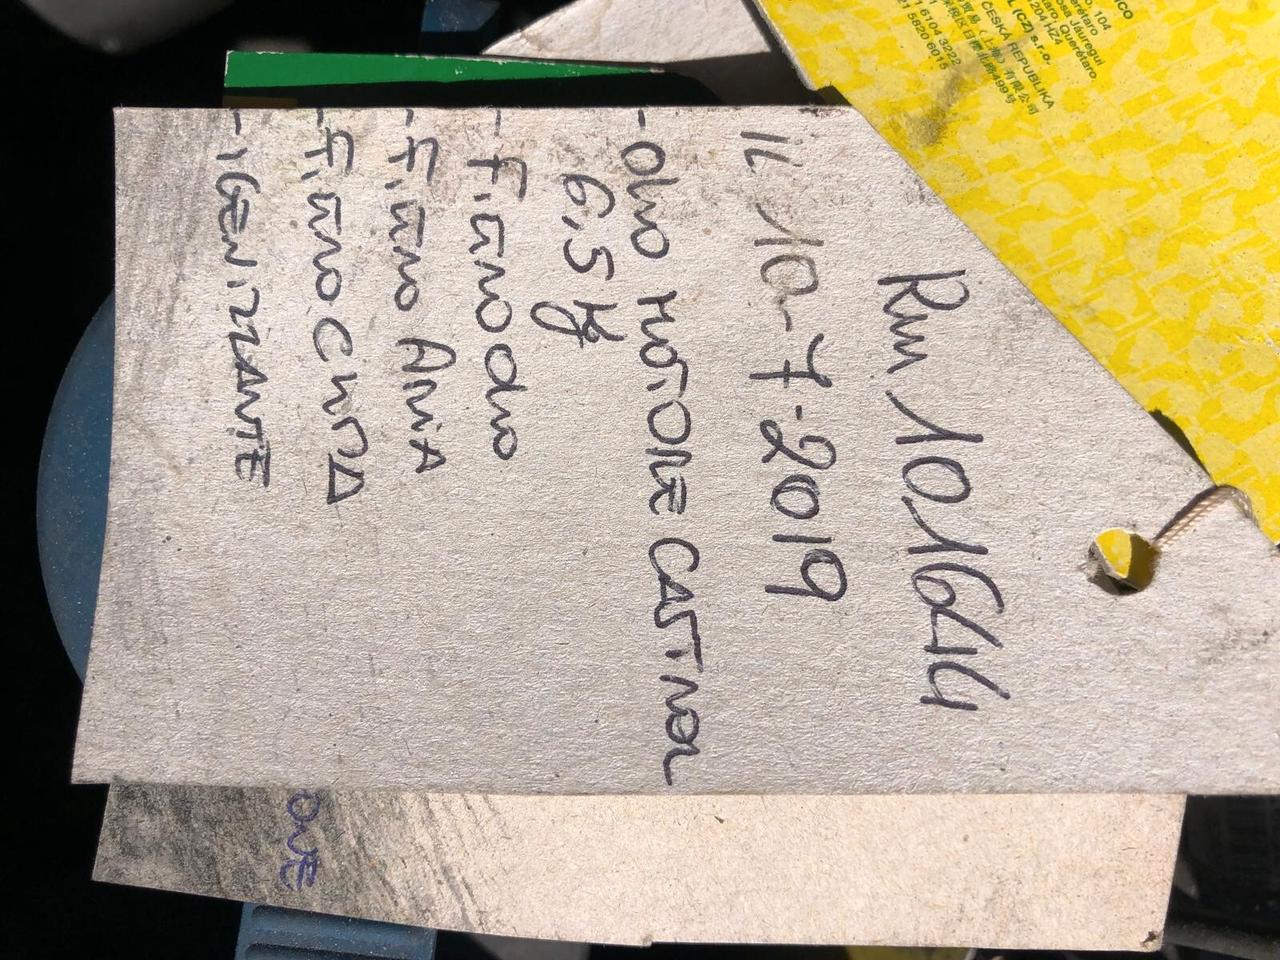 Km 101644
IL 10-7-2019
- OLIO MOTORE CASTROL
6,5 kg
- FILTRO OLIO
- FILTRO ARIA
- FILTRO CLIMA
- IGENIZZANTE
ONE
ČESKÁ REPUBLIKA
L (CZ) s.r.o.